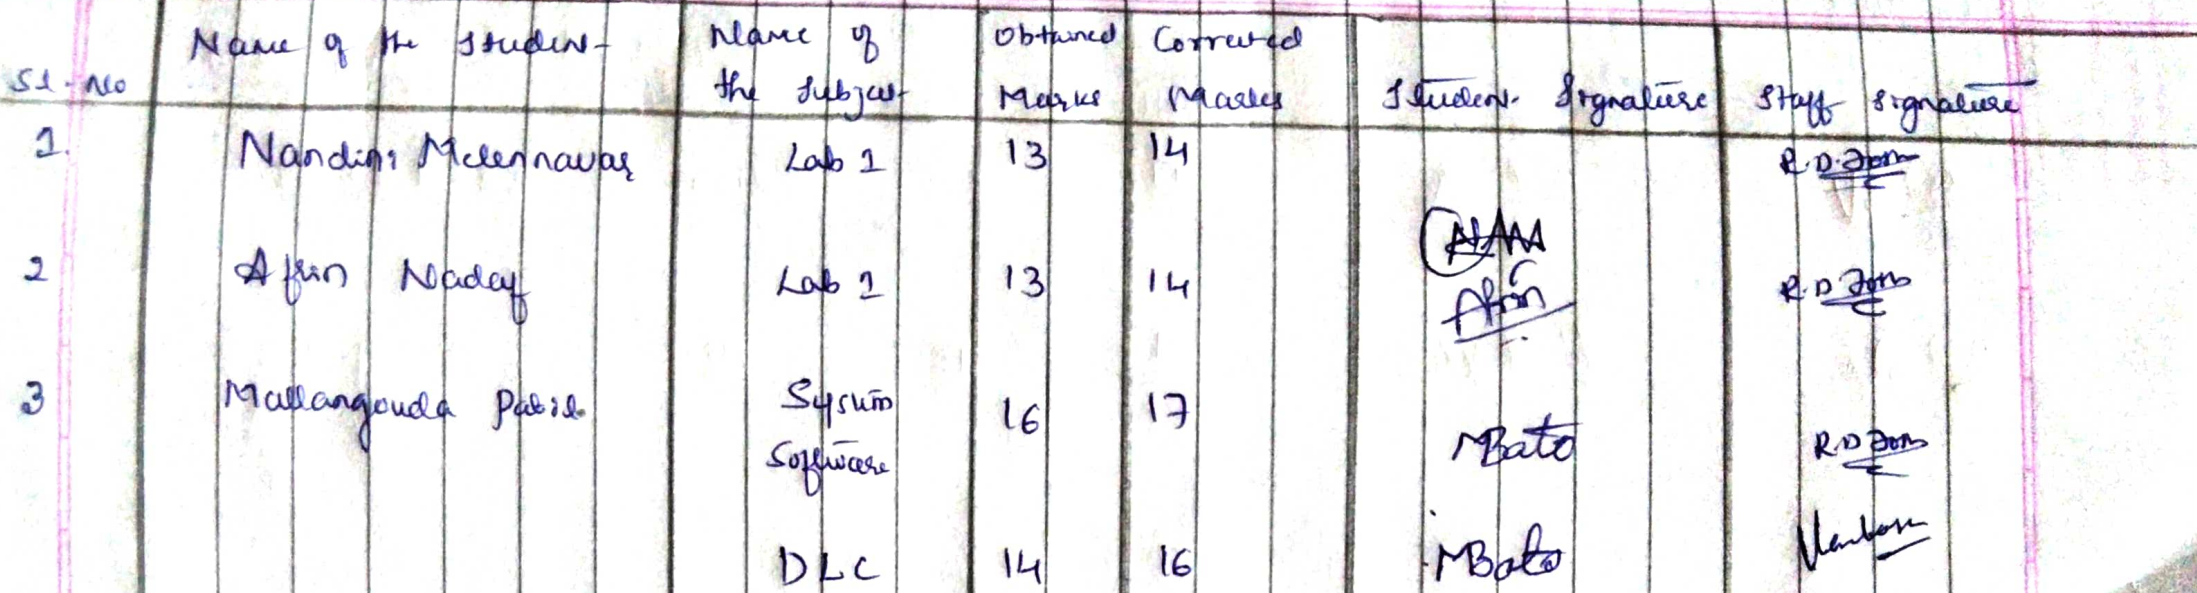 Sl. No Name of the Student Name of the Subject Obtained Marks Corrected Marks Student Signature Staff Signature
1. Nandini Lab 1 13 14 R.D.
2 Afrin Nadaf Lab 1 13 14 Afrin R.D
3 Mallangouda Patil System Software 16 17 R.D
DLC 14 16